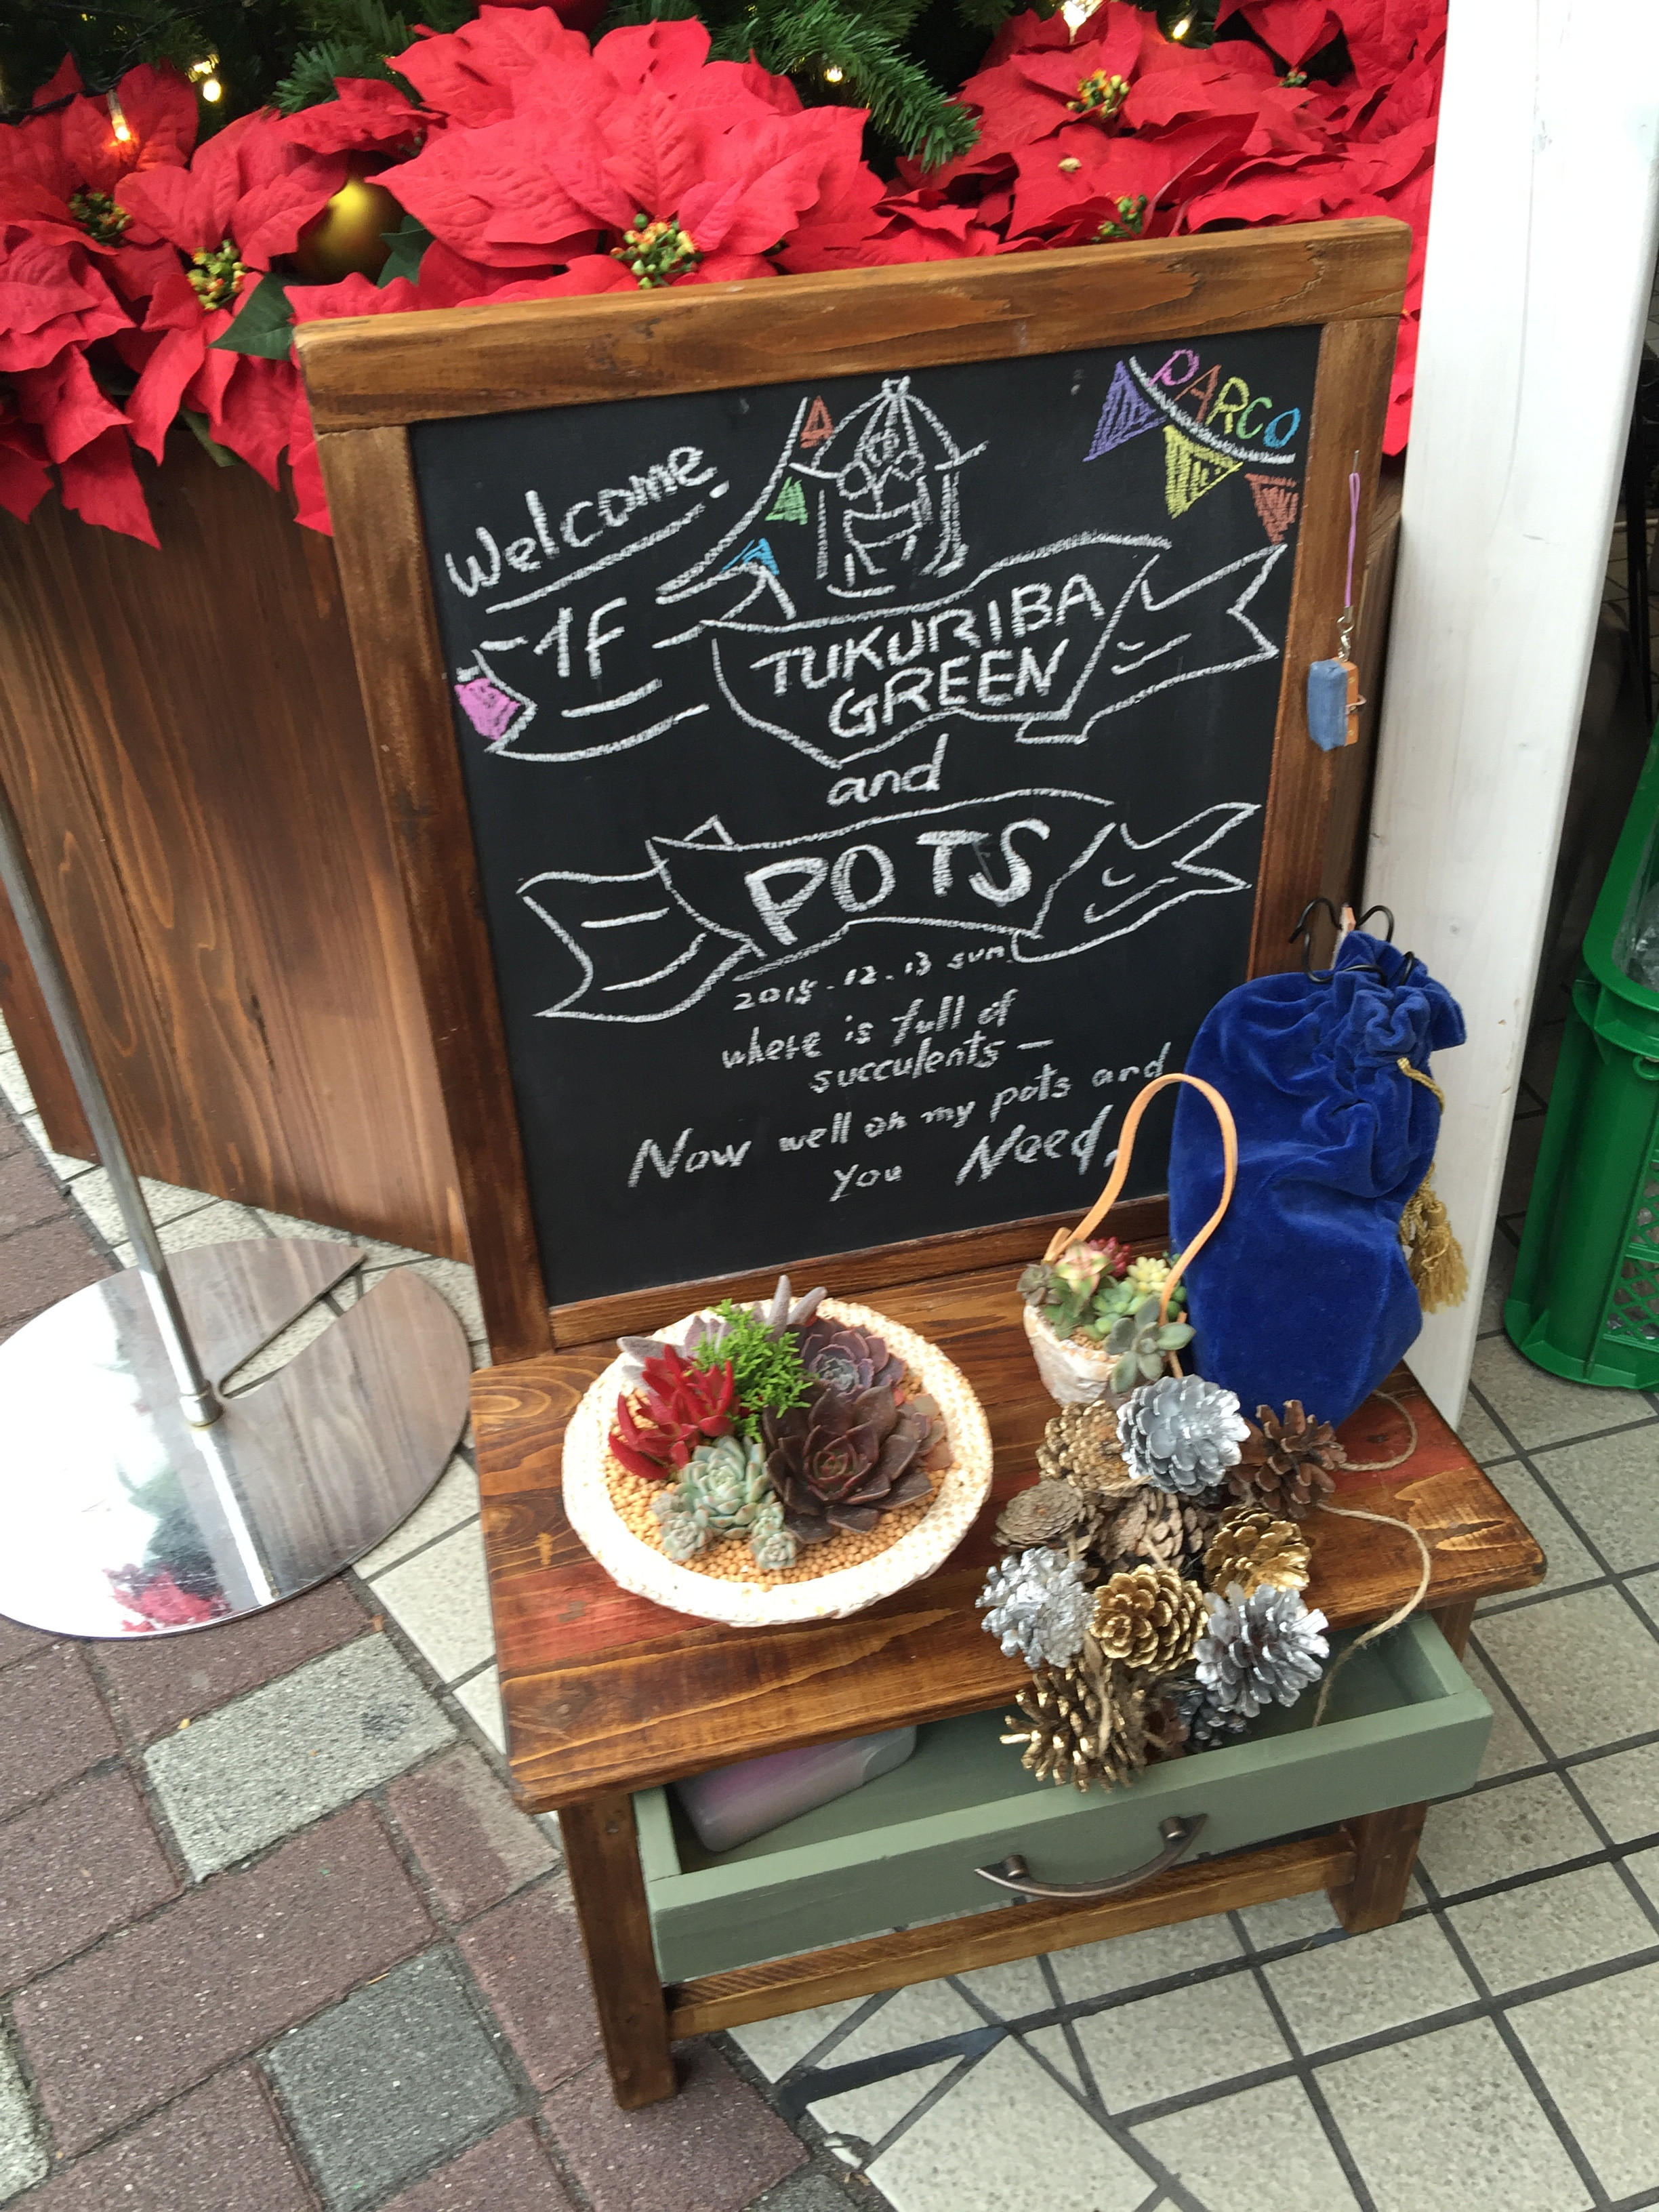 PARCO
Welcome
1F
TUKURIBA
GREEN
and
POTS
2015.12.13 sun.
where is full of
succulents —
Now well on my pots and
you Need.